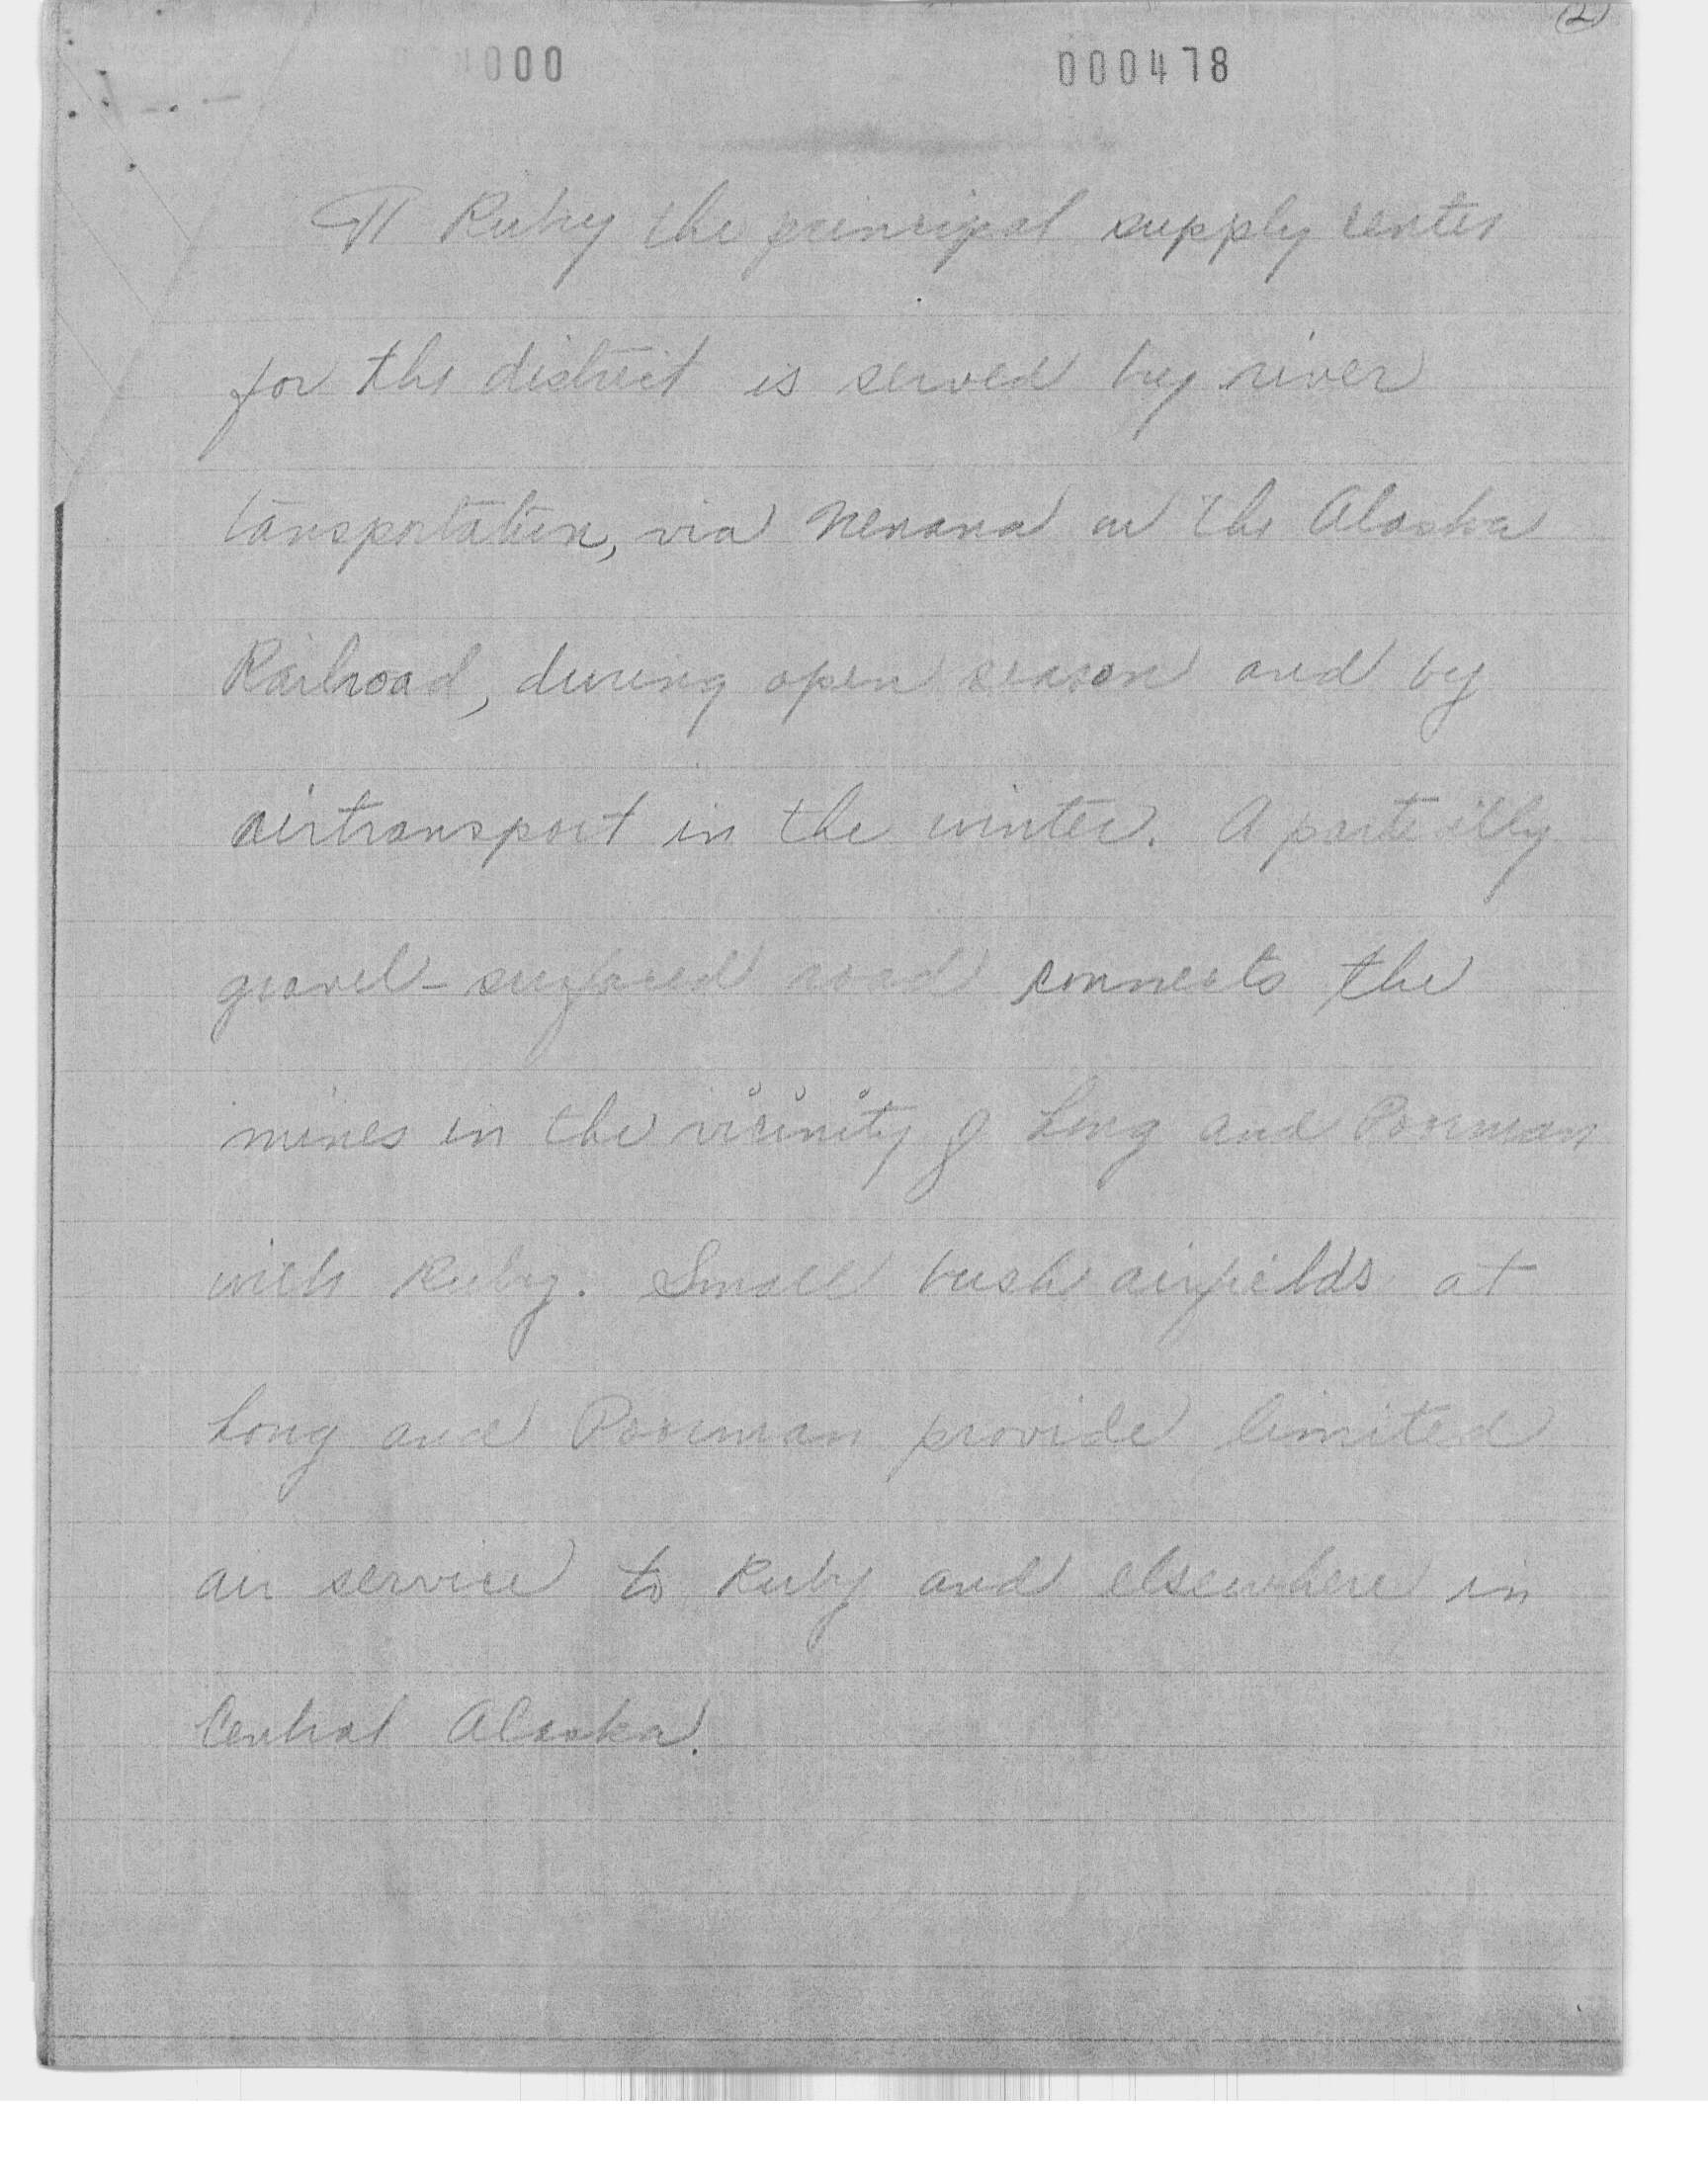 (2)
000 000478
¶ Ruby the principal supply center
for the district is served by river
tansportation, via Nenana on the Alaska
Railroad, during open season and by
airtransport in the winter. A partially
gravel-surfaced road connects the
mines in the vicinity of Long and Poorman
with Ruby. Small bush airfields at
Long and Poorman provide limited
air service to Ruby and elsewhere in
Central Alaska.